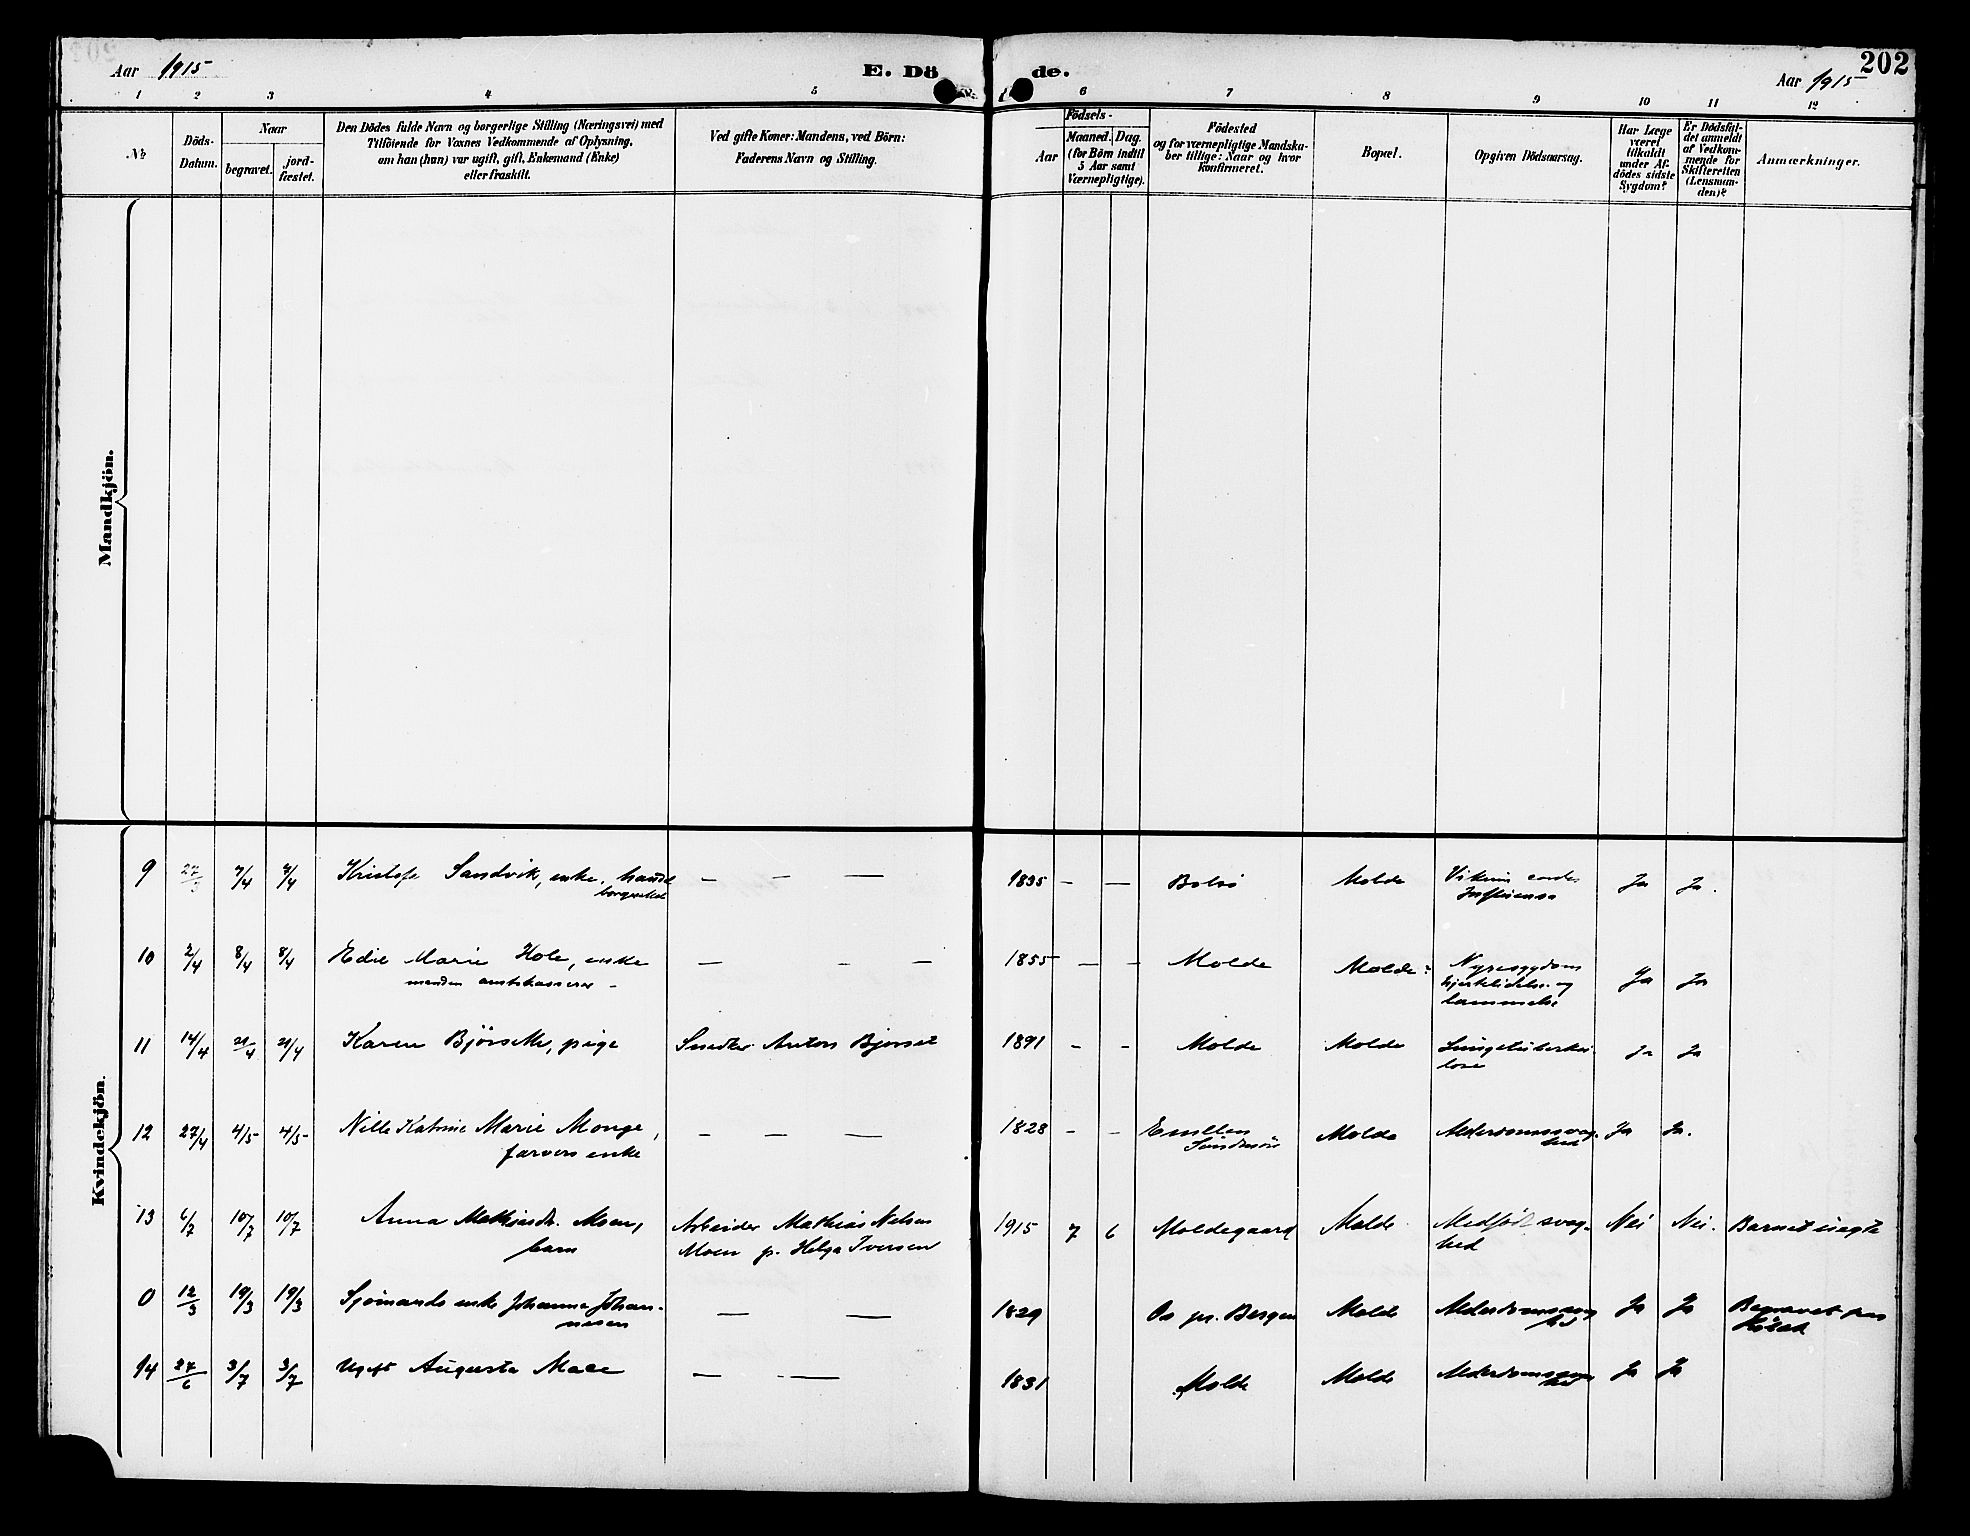 202
Aar 1915
E. Dö de.
Aar 1915
1 2 3 4 5 6 7 8 9 10 11 12
№
Döds-
Datum.
Naar
begravet.
jord-
fæstet.
Den Dödes fulde Navn og borgerlige Stilling (Næringsvei) med
Tilföiende for Voxnes Vedkommende af Oplysning,
om han (hun) var ugift, gift, Enkemand (Enke)
eller fraskilt.
Ved gifte Koner: Mandens, ved Börn:
Faderens Navn og Stilling.
Födsels-
Aar
Maaned. Dag.
(for Börn indtil
5 Aar samt
Værnepligtige).
Födested
og for værnepligtige Mandska-
ber tillige: Naar og hvor
konfirmeret.
Bopæl.
Opgiven Dödsaarsag.
Har Læge
været
tilkaldt
under Af-
dödes sidste
Sygdom?
Er Dödsfal-
det anmeldt
af Vedkom-
mende for
Skifteretten
(Lensman-
den)?
Anmærkninger.
Mandkjön.
Kvindekjön.
9 27/3 7/4 7/4 Kristofe Sandvik, enke, — — — 1835 — — Bolsö Molde Ja Ja.
Influensa
10 2/4 8/4 8/4 Edie Marie Hole, enke — — — 1855 — — Molde Molde Nyresygdom Ja Ja
manden amtskasserer — hjertelidelse og
lammelse
11 14/4 21/4 21/4 Karen Bjørsette, pige Snedker Anton Bjørset 1891 — — Molde Molde Lungetuberku- Ja Ja
lose
12 27/4 4/5 4/5 Nille Katrine Marie Monge, — — — 1828 — — Molde Alderdomssvag- Ja Ja.
farvers enke hed
13 6/7 10/7 10/7 Anna Mathiasdr. Moen, Arbeider Mathias Nelsen 1915 7 6 Moldegaard Molde Medfødt svag- Nei Nei. Barnet uegte
barn Moen p. Helga Iversen hed
0 12/3 19/3 19/3 Sjömands enke Johanna Johan- — — 1829 Os pr. Bergen Molde Alderdomssvag Ja Ja Begravet paa
nesen hed
14 27/6 3/7 3/7 Ugift Augusta Maae — — 1831 Molde Molde Alderdomssvag Ja Ja
hed